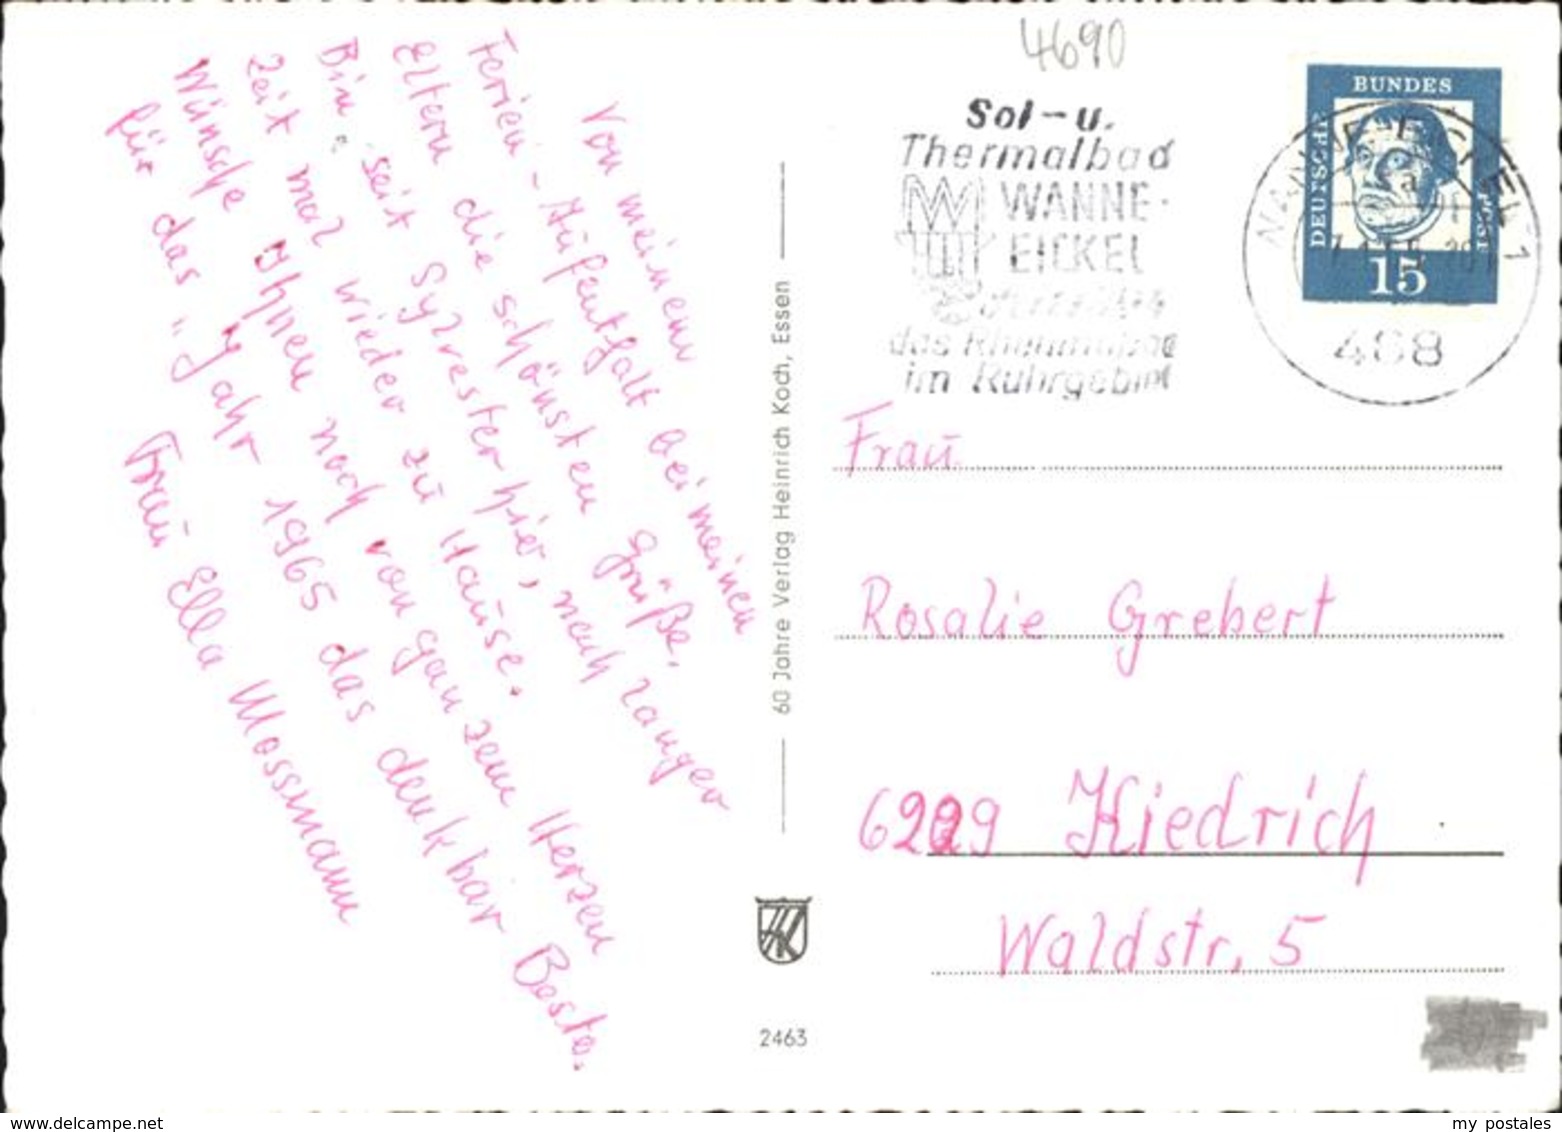 Von meinem
Ferien-Aufenthalt bei meinen
Eltern die schönsten Grüße.
Bin seit Sylvester hier, nach langer
Zeit mal wieder zu Hause.
Wünsche Ihnen noch von ganzem Herzen
für das "Jahr 1965 das denkbar Beste.
Frau Ella Mossmann
60 Jahre Verlag Heinrich Koch, Essen
HK
2463
4690
Sol-u.
Thermalbad
WANNE-
EICKEL
das
im Ruhrgebiet
WANNE-EICKEL 1
a
468
DEUTSCHE
BUNDES
POST
15
Frau
Rosalie Grebert
6229 Kiedrich
Waldstr. 5
www.delcampe.net
my_postales